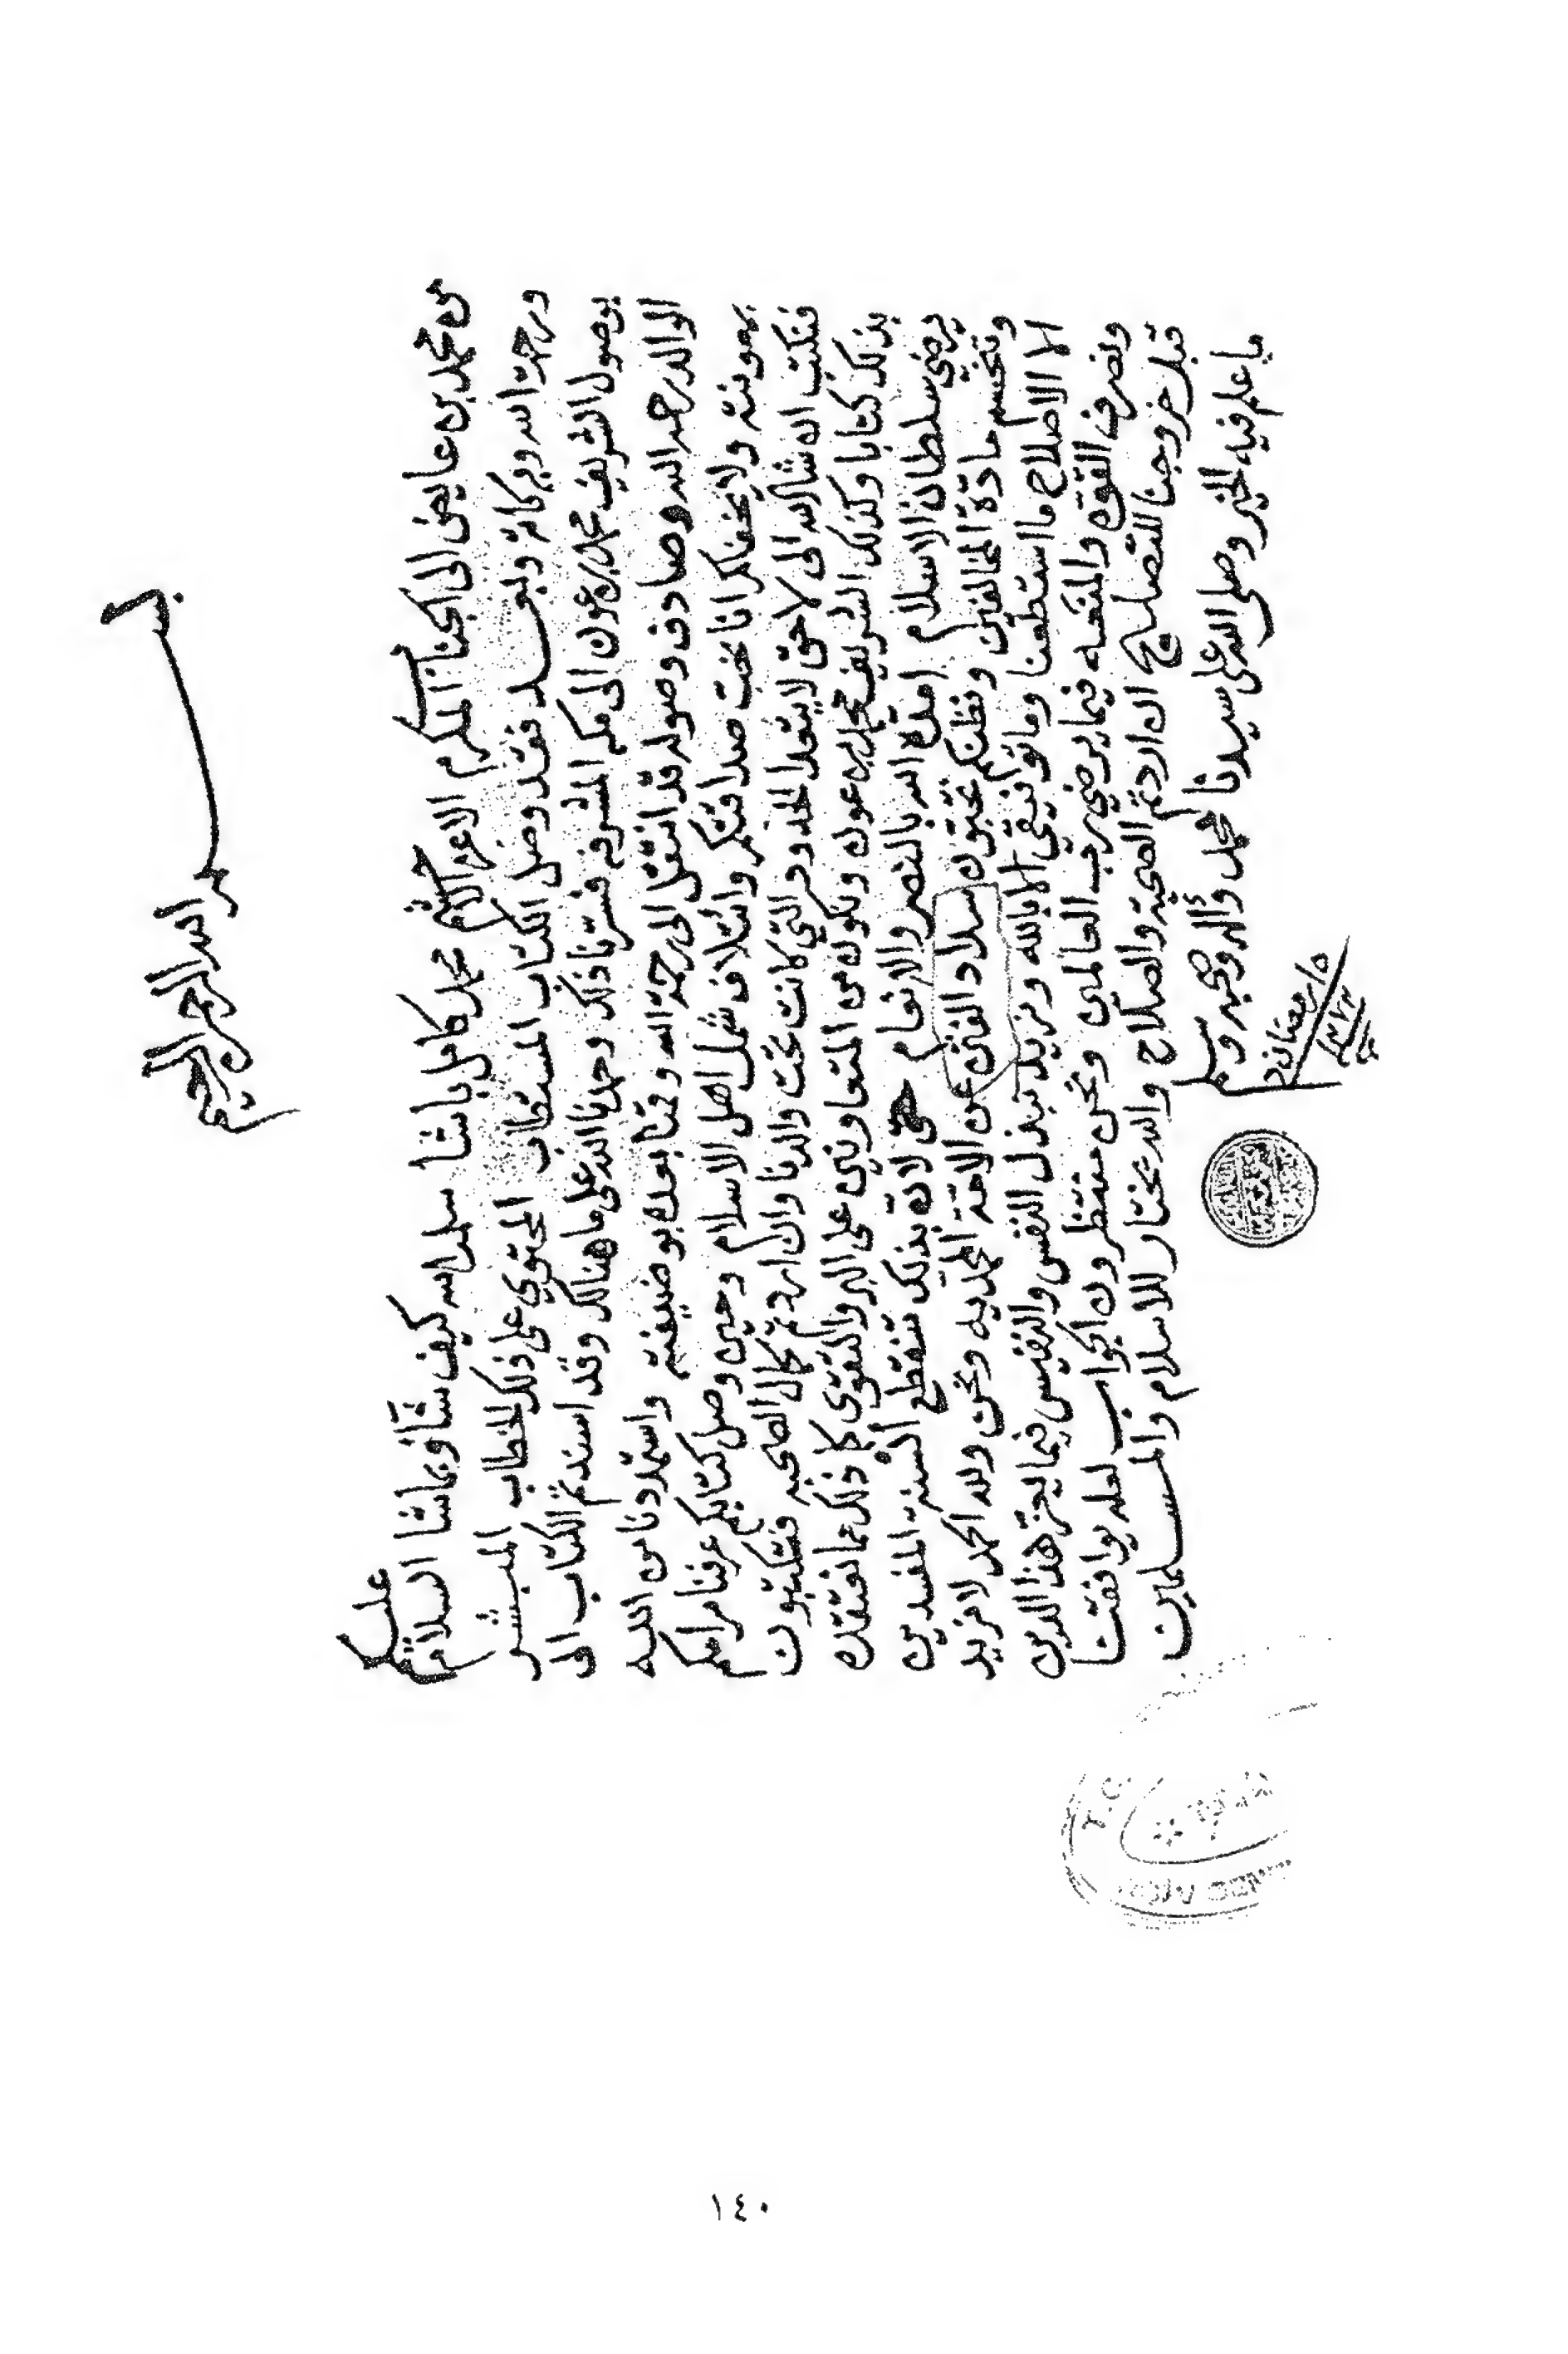 بسم الله الرحمن الرحيم
من محمد بن عايض الى الجناب المكرم الاعز الاحشم محمد كامل باشا سلمه الله كيف شآء وماشا السلام عليكم
ورحمة الله وبركاته وبعد فقد وصل الكتاب المستطاب المحتوي على ذلك الخطاب المبشر
بوصول الشريف محمد بن عون الى مكه المشرفه فسرنا ذلك وحمدنا الله على ما هنالك وقد اسندتم الكتاب الى
الوالد رحمه الله وصادف وصوله قد انتقل الى رحمة الله وقمنا بعده بوضيفته واستمدونا من الله
بمعونته ولا يخفاكم انا نحب صداقتكم وائتلاف شمل اهل الاسلام وحين وصل كتابكم عرفنا مرامكم
فنكتب ان شا الله الى لاحق لا يتعدا الحدود التي كانت تحت والدنا وان اردتم كمال الصحبه فتكتبون
بذلك كتابا وكذلك الشريف محمد بن عون ونكون من المتعاونين على البر والتقوى كما ذلك مما نعتقده
يرضي سلطان الاسلام امده الله بالنصر والانعام حتى لانه بذلك تنقطع ألسنة المفسدين
وتنحسم مادة المخالفين ونظنكم تحبون سلاد والفاني عن الامة المحمديه ونحن ولله الحمد لا نريد
الا الاصلاح ما استطعنا وما توفيقي الا بالله ونريد نبذل النفس والنفيس فيما يعز هذا الدين
ونصرف القوه والمنعه فيما يرضي رب العالمين ونحن منتظرون الجواب لعله يوافقنا
قبل خروجنا للتصليح ان اردتم الصحبة والصلاح والله يختار للاسلام والمسلمين
ما علم فيه الخير وصلى الله على سيدنا محمد وأله وصحبه وسلم
١٤٠